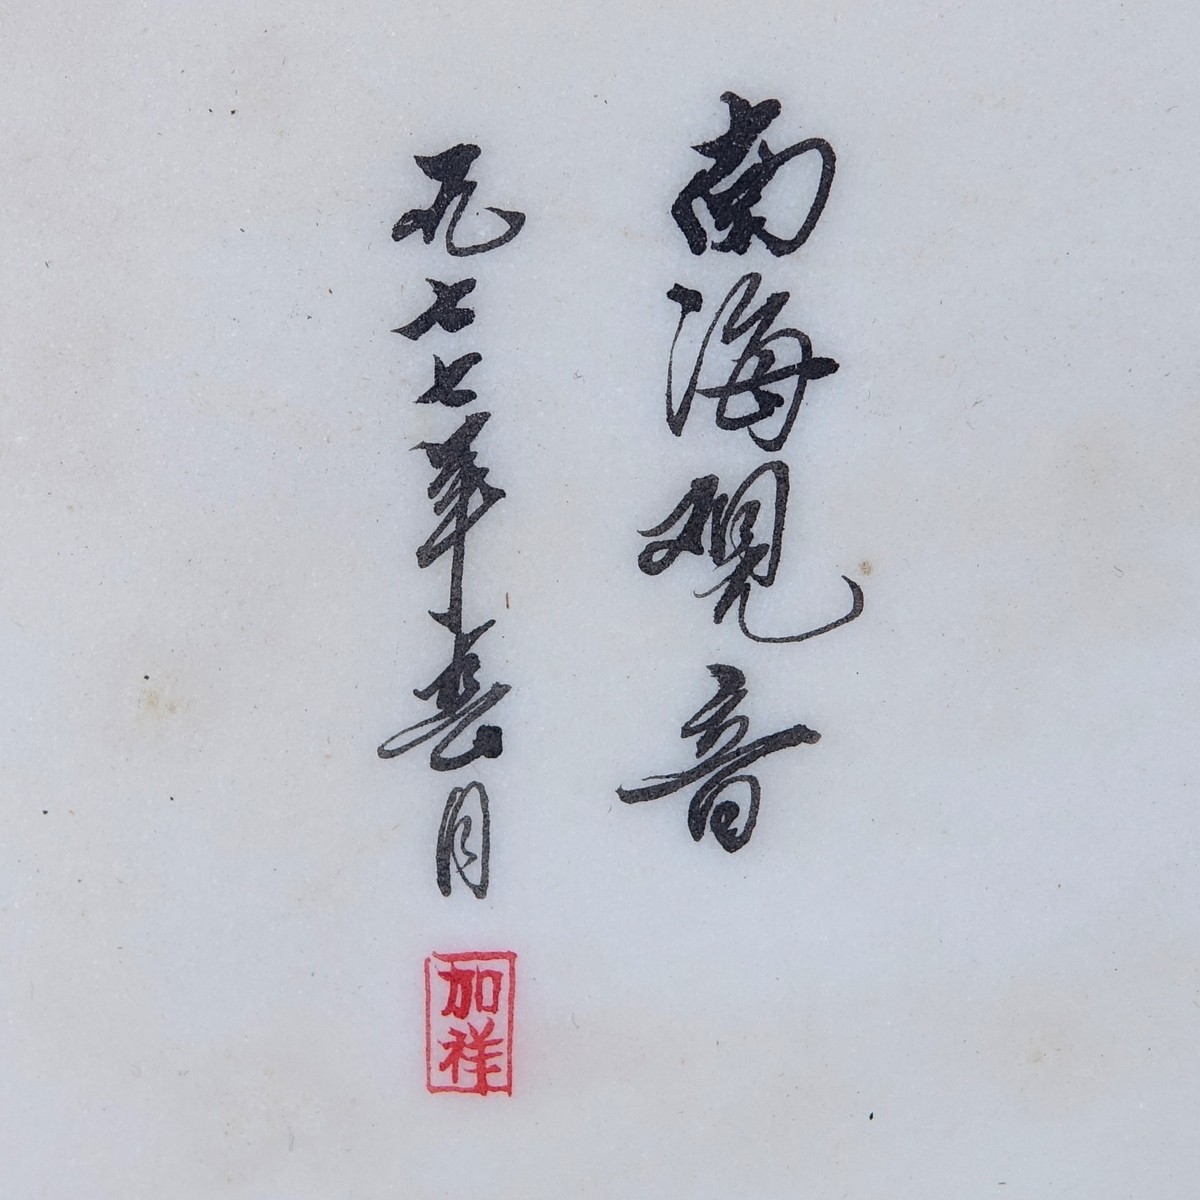 南海观音
一九七七年春月
加祥